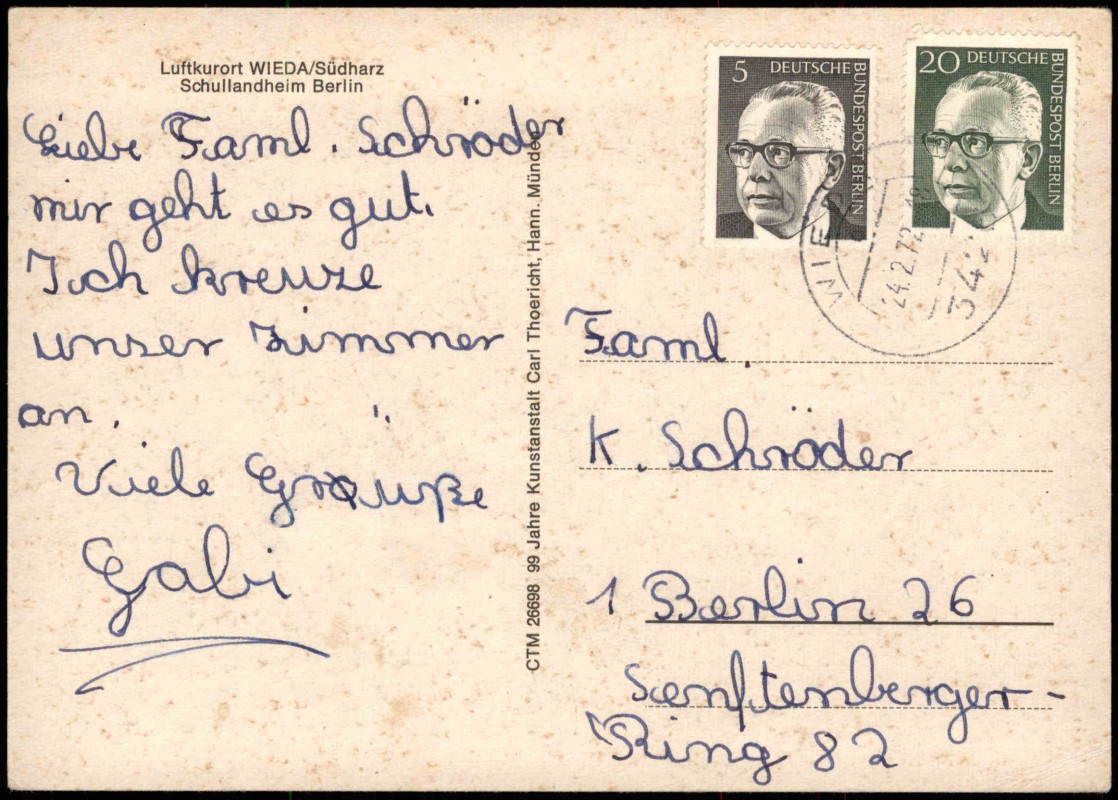 Luftkurort WIEDA/Südharz
Schullandheim Berlin
Liebe Faml. Schröder
mir geht es gut.
Ich kreuze
unser Zimmer
an.
Viele Grouße
Gabi
CTM 26698 99 Jahre Kunstanstalt Carl Thoericht, Hann. Münden
5 DEUTSCHE BUNDESPOST BERLIN
20 DEUTSCHE BUNDESPOST BERLIN
24.2.72
342
Faml.
K. Schröder
1 Berlin 26
Senftenberger-
Ring 82